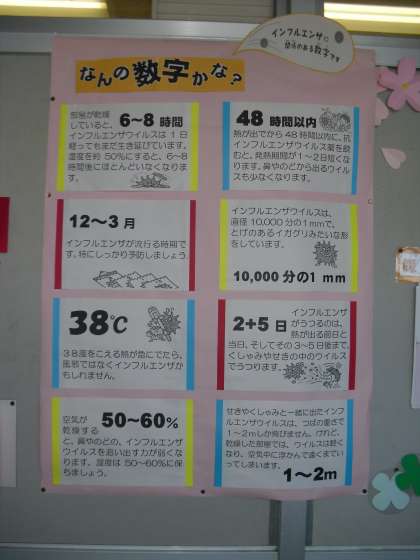 インフルエンザに
関係のある数字です
なんの数字かな？
6～8 時間
部屋が乾燥
していると、
インフルエンザウイルスは 1 日
経ってもまだ生き延びています。
湿度を約 50%にすると、6～8
時間後にほとんどいなくなりま
す。
48 時間以内
熱が出てから 48 時間以内に、抗
インフルエンザウイルス薬を飲
むと、発熱期間が 1～2 日短くな
ります。鼻やのどから出るウイル
スも少なくなります。
12～3 月
インフルエンザが流行る時期で
す。特にしっかり予防しましょう。
インフルエンザウイルスは、
直径 10,000 分の1 mmで、
とげのあるイガグリみたいな形
をしています。
10,000 分の1 mm
38℃
38度をこえる熱が急にでたら、
風邪ではなくインフルエンザか
もしれません。
2+5 日
インフルエンザ
がうつるのは、
熱が出る前日と
当日、そしてその 3～5 日後まで、
くしゃみやせきの中のウイルス
でうつります。
50～60%
空気が
乾燥する
と、鼻やのどの、インフルエンザ
ウイルスを追い出す力が弱くな
ります。湿度は 50～60%に保
ちましょう。
せきやくしゃみと一緒に出たインフ
ルエンザウイルスは、つばの重さで
1～2mしか飛びません。けれど、
乾燥した部屋では、ウイルスは軽く
なり、空気中に浮かんで遠くまでい
ってしまいます。
1～2m